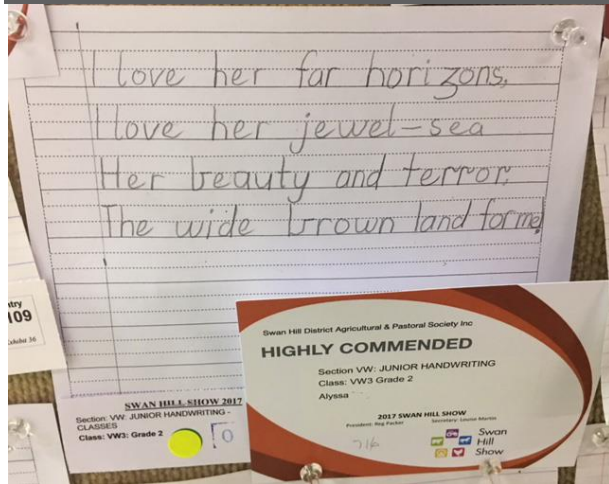 I love her far horizons,
I love her jewel-sea
Her beauty and terror,
The wide brown land for me!
try
109
Exhibit 36
SWAN HILL SHOW 2017
Section: VW: JUNIOR HANDWRITING -
CLASSES
Class: VW3: Grade 2
10
Swan Hill District Agricultural & Pastoral Society Inc
HIGHLY COMMENDED
Section VW: JUNIOR HANDWRITING
Class: VW3 Grade 2
Alyssa
2017 SWAN HILL SHOW
President: Reg Packer Secretary: Louise Martin
Swan
Hill
Show